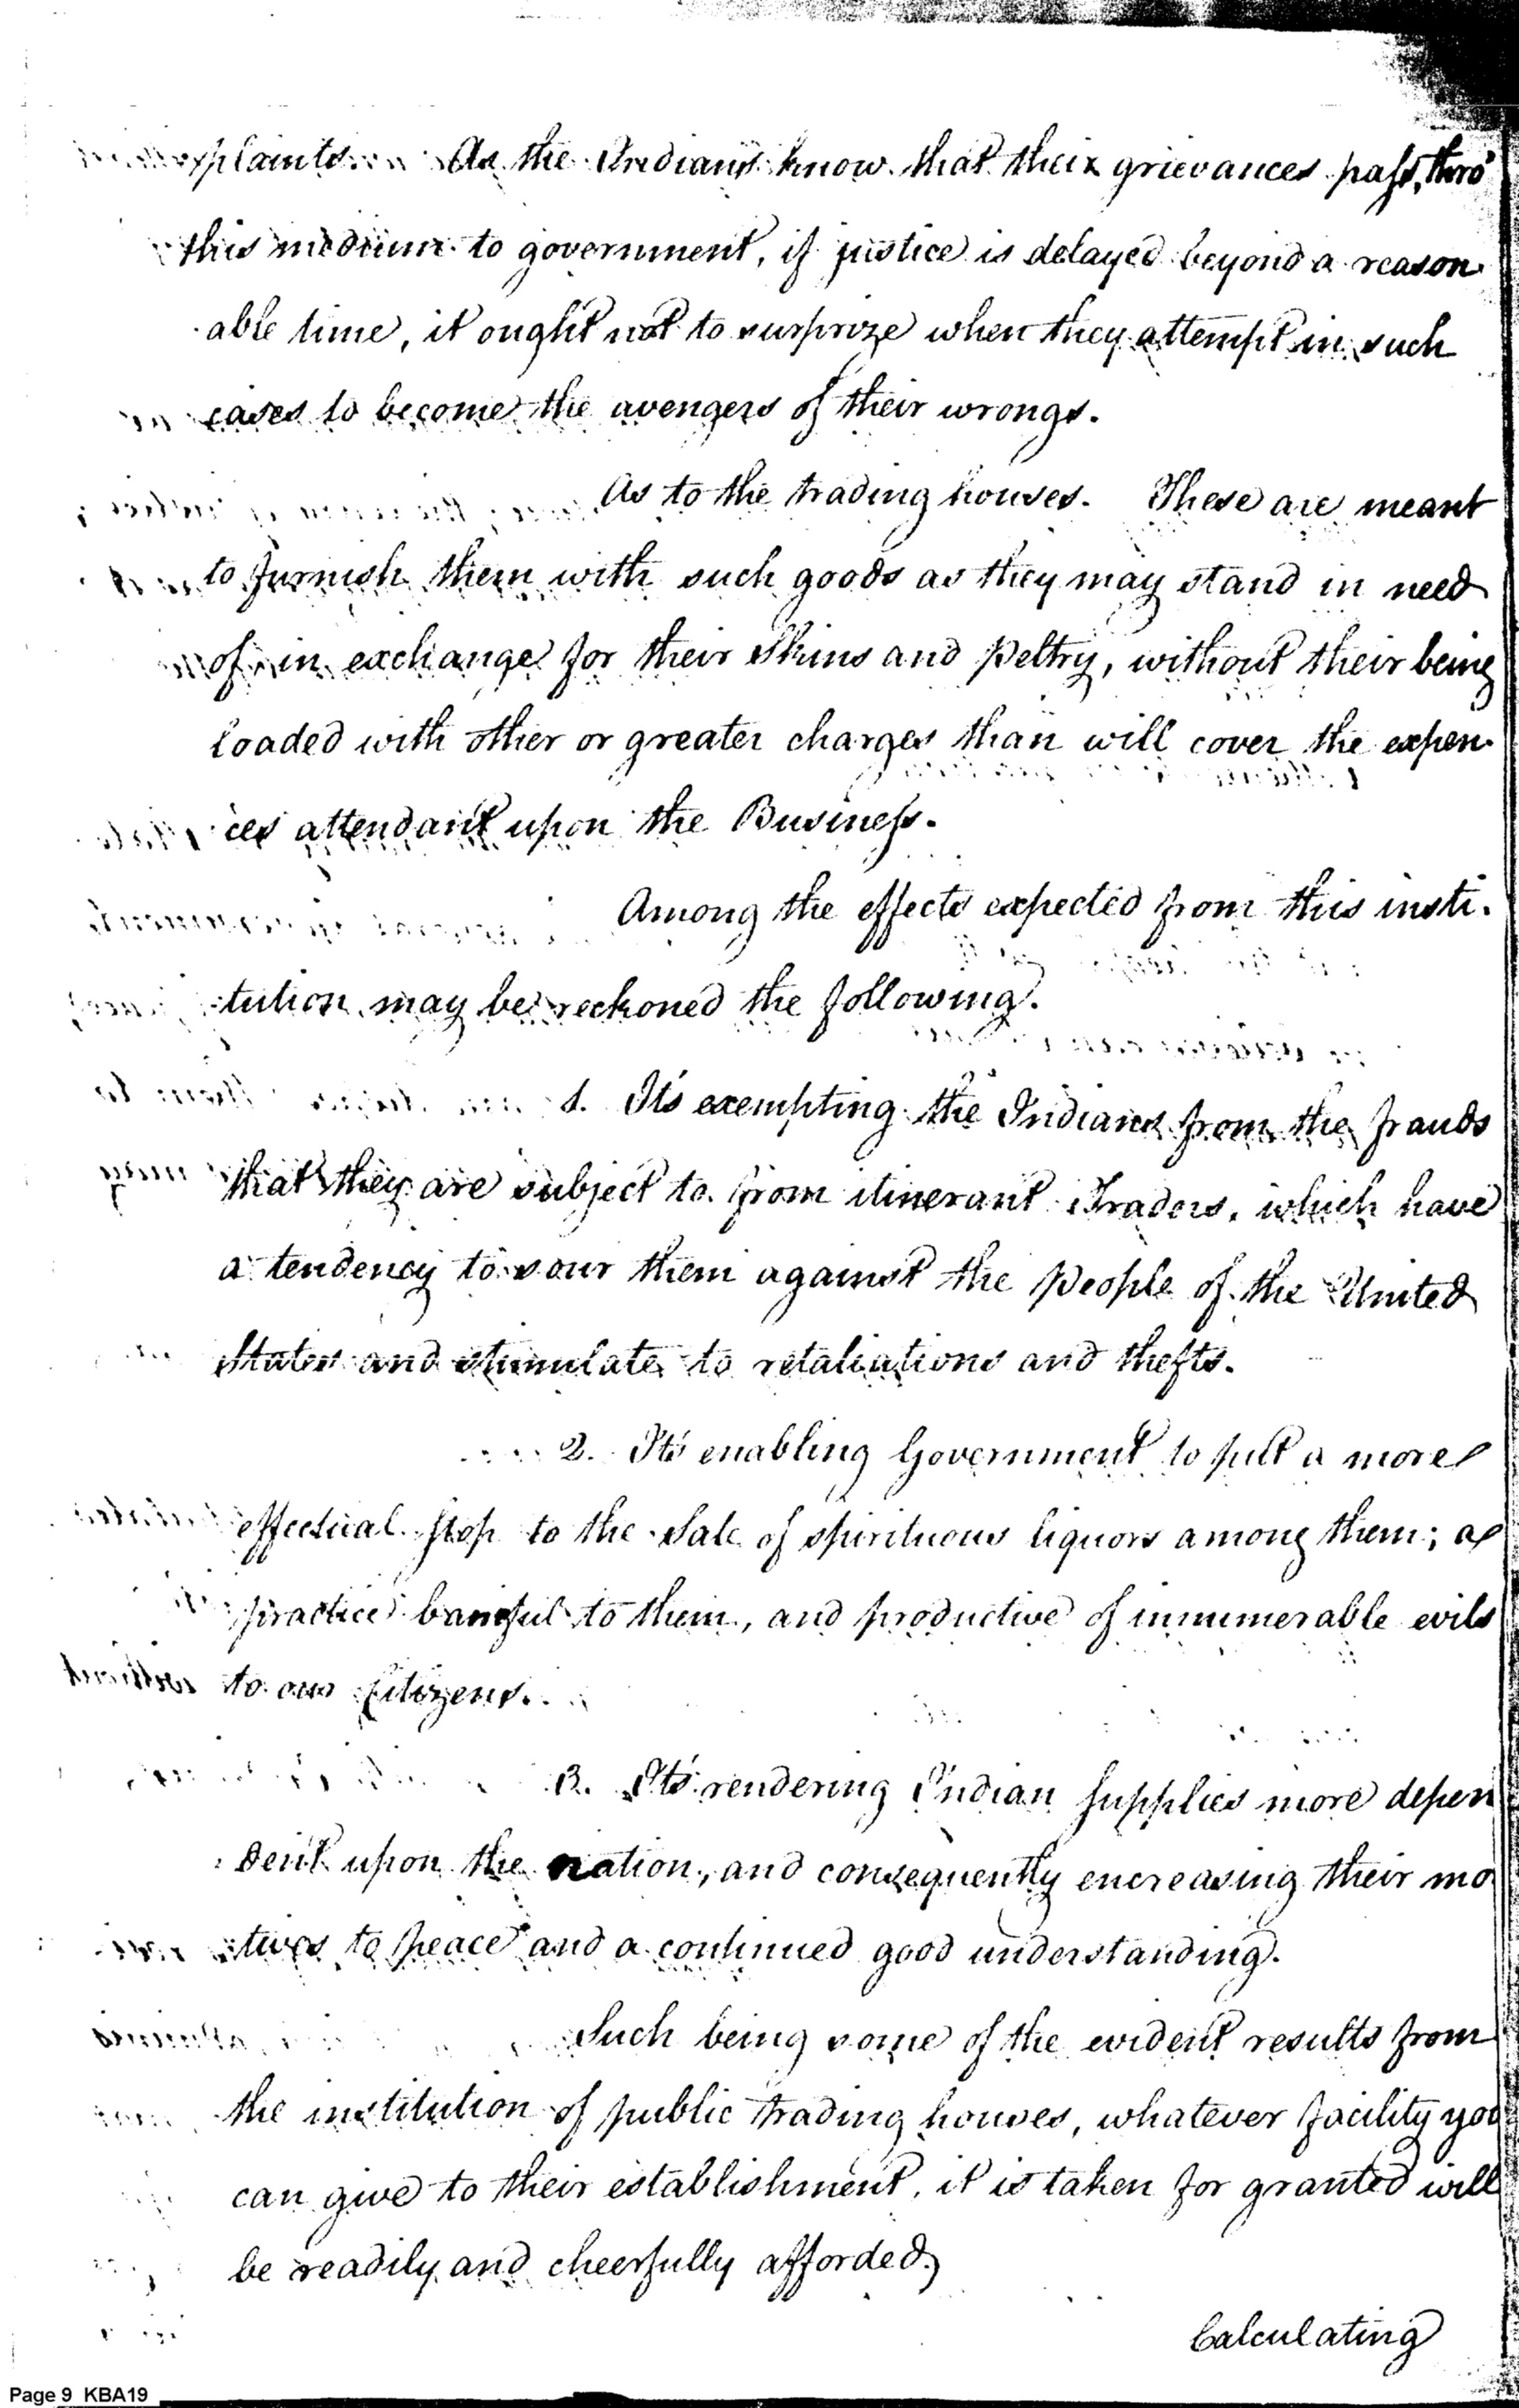 plaints. As the Indians know that their grievances pass, thro'
this medium to government, if justice is delayed beyond a reason
able time, it ought not to surprize when they attempt in such
cases to become the avengers of their wrongs.
As to the trading houses. These are meant
to furnish them with such goods as they may stand in need
of in exchange for their Skins and peltry, without their being
loaded with other or greater charges than will cover the expen
ces attendant upon the Business.
Among the effects expected from this insti-
tution may be reckoned the following.
1. It's exempting the Indians from the frauds
that they are subject to from itinerant Traders, which have
a tendency to sour them against the people of the United
States and stimulate to retaliations and thefts.
2. It's enabling Government to put a more
effectual stop to the Sale of spirituous liquors among them; a
practice baneful to them, and productive of innumerable evils
to our Citizens.
3. It's rendering Indian supplies more depen
dent upon the nation, and consequently encreasing their mo
tives to peace and a continued good understanding.
Such being some of the evident results from
the institution of public trading houses, whatever facility you
can give to their establishment, it is taken for granted will
be readily and cheerfully afforded.
Calculating
Page 9 KBA19